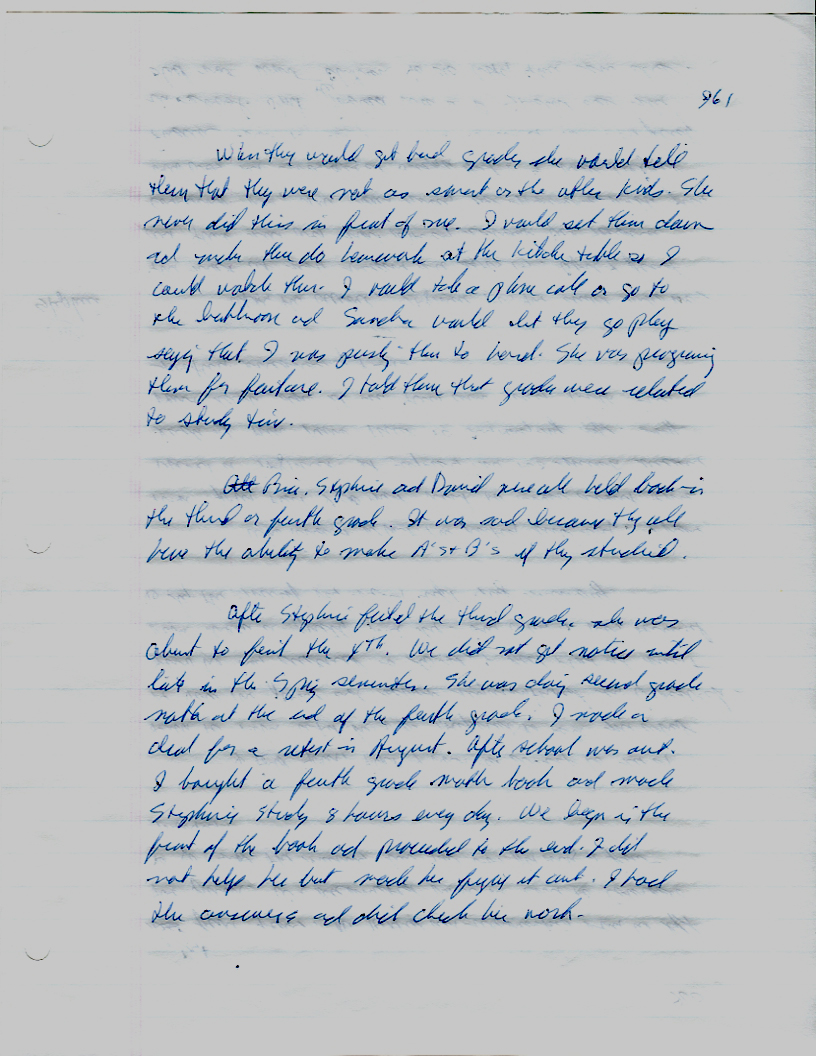 961
When they would get bad grades she would tell
them that they were not as smart as the other kids. She
never did this in front of me. I would set them down
ad make them do homework at the kitchen table so I
could watch them. I would take a phone call or go to
the bathroom ad Sandra would let they go play
saying that I was pushing them to hard. She was programing
them for failure. I told them that grades were related
to study time.
Stephnie ad David were all held back in
the third or fourth grade. It was sad because they all
have the ability to make A's + B's if they studied.
After Stephnie failed the third grade, she was
about to fail the 4th. We did not get notice until
late in the Spring semester. She was doing second grade
math at the end of the fourth grade. I made a
deal for a retest in August. After school was out.
I bought a fourth grade math book ad made
Stephnie study 8 hours every day. We began in the
front of the book ad proceeded to the end. I did
not help her but made her figure it out. I had
the answers ad did check her work.